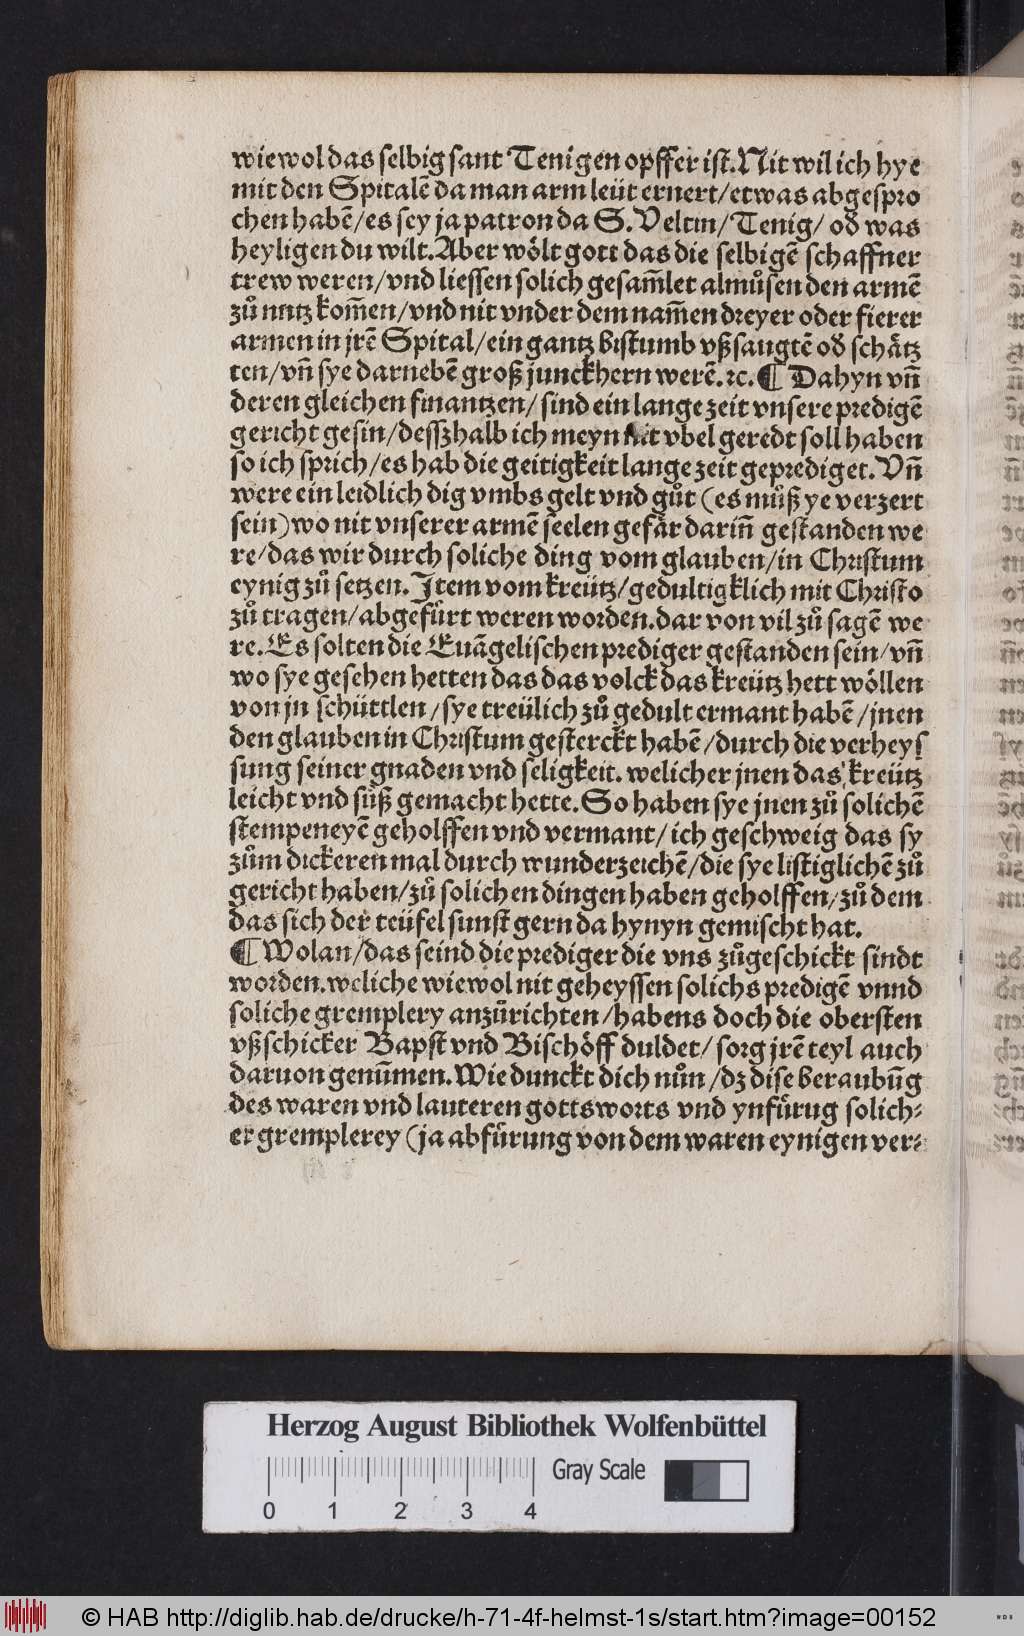 wiewol das selbig sant Tenigen opffer ist. Nit wil ich hye
mit den Spitalē da man arm leüt ernert/etwas abgespro
chen habē/es sey ja patron da S. Veltin/Tenig/ od̄ was
heyligen du wilt. Aber wölt gott das die selbigē schaffner
trew weren/vnd liessen solich gesam̄let almůsen den armē
zů nutz kom̄en/vnd nit vnder dem nam̄en dreyer oder fierer
armen in jrē Spital/ein gantz bistumb vßsaugtē od̄ schätz
ten/vn̄ sye darnebē groß junckhern werē.ꝛc. ¶ Dahyn vn̄
deren gleichen finantzen/sind ein lange zeit vnsere predigē
gericht gesin/desszhalb ich meyn nit vbel geredt soll haben
so ich sprich/es hab die geitigkeit lange zeit geprediget. Vn̄
were ein leidlich dig vmbs gelt vnd gůt (es můß ye verzert
sein) wo nit vnserer armē seelen gefär darin̄ gestanden we
re/das wir durch soliche ding vom glauben/in Christum
eynig zů setzen. Item vom kreütz/gedultigklich mit Christo
zů tragen/abgefürt weren worden.dar von vil zů sagē we
re. Es solten die Euāgelischen prediger gestanden sein/vn̄
wo sye gesehen hetten das das volck das kreütz hett wöllen
von jn schüttlen/sye treülich zů gedult ermant habē/jnen
den glauben in Christum gesterckt habē/durch die verheys
sung seiner gnaden vnd seligkeit.welicher jnen das kreütz
leicht vnd süß gemacht hette. So haben sye jnen zů solichē
stempeneyē geholffen vnd vermant/ich geschweig das sy
zům dickeren mal durch wunderzeichē/die sye listiglichē zů
gericht haben/zů solichen dingen haben geholffen/zů dem
das sich der teüfel sunst gern da hynyn gemischt hat.
¶ Wolan/das seind die prediger die vns zůgeschickt sindt
worden.weliche wiewol nit geheyssen solichs predigē vnnd
soliche gremplery anzůrichten/habens doch die obersten
vßschicker Bapst vnd Bischöff duldet/sorg jrē teyl auch
daruon genūmen. Wie dunckt dich nůn/dz dise beraubūg
des waren vnd lauteren gottsworts vnd ynfürug solich⸗
er gremplerey (ja abfürung von dem waren eynigen ver⸗
Herzog August Bibliothek Wolfenbüttel
0 1 2 3 4 Gray Scale
© HAB http://diglib.hab.de/drucke/h-71-4f-helmst-1s/start.htm?image=00152